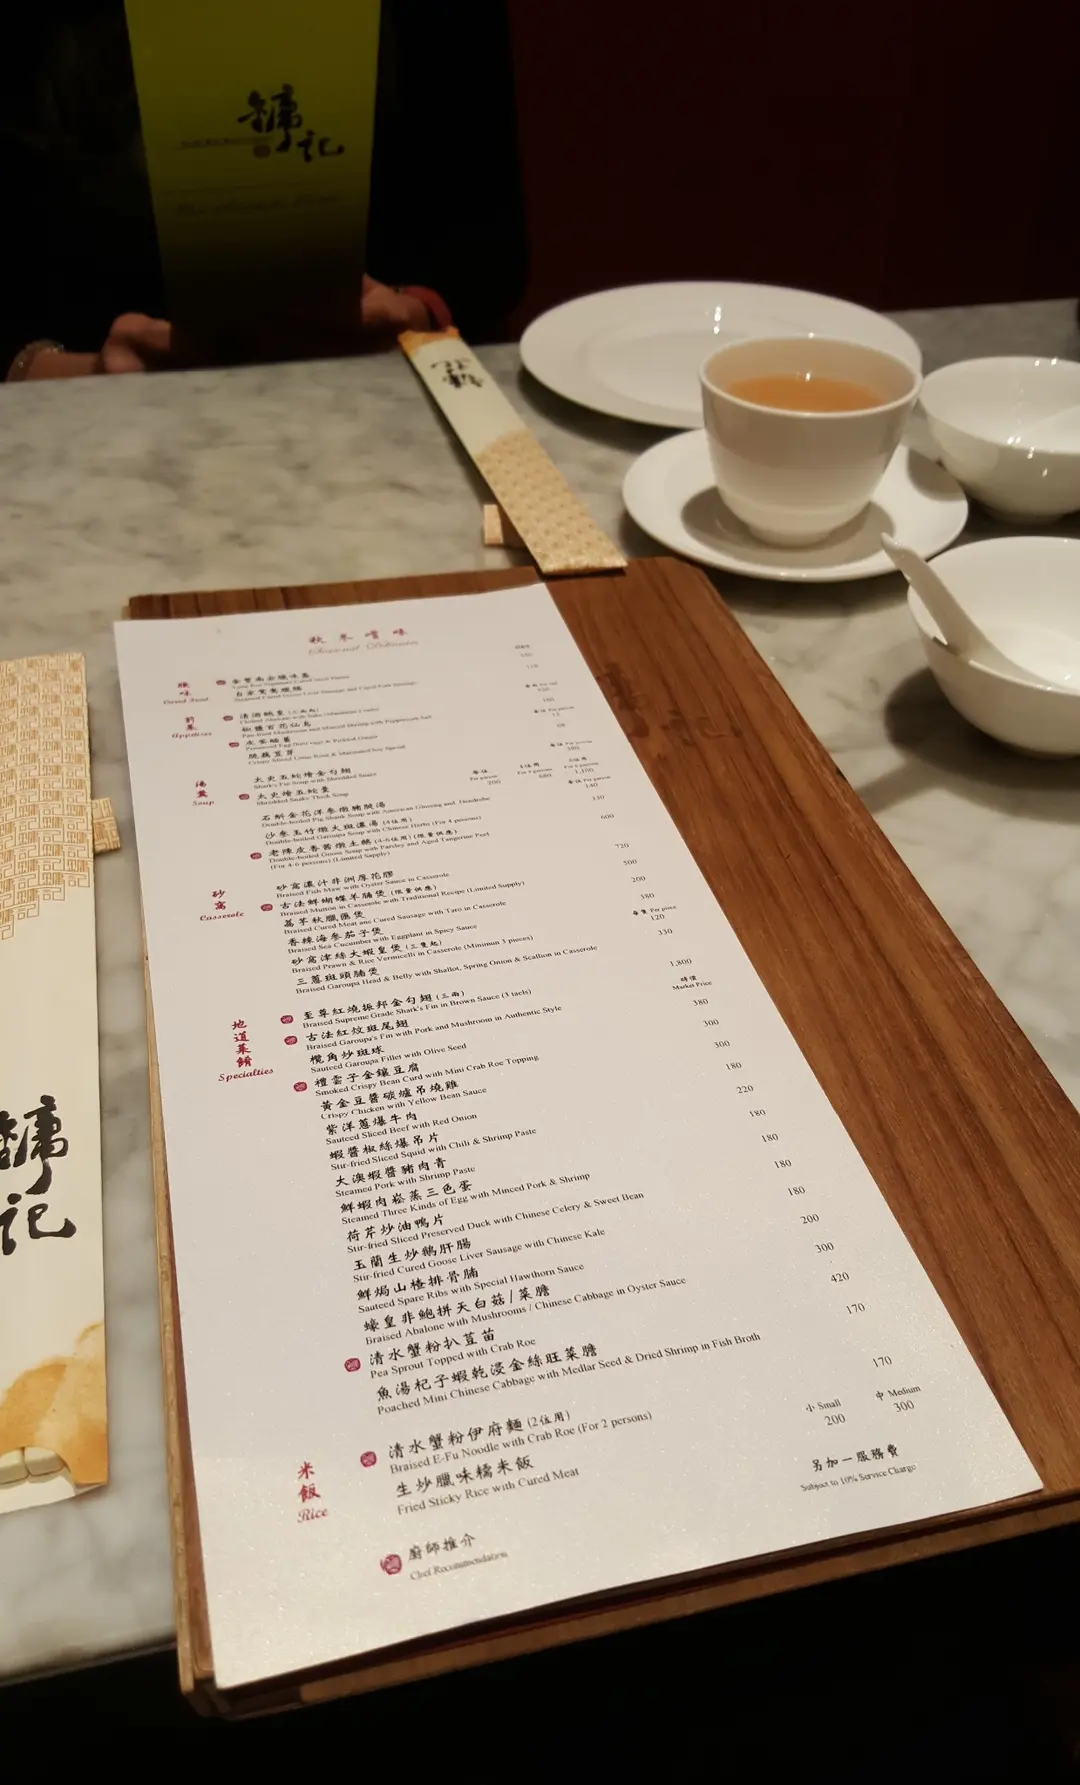 鏞記
秋冬嚐味
Seasonal Delicacies
臘味
Cured Food
前菜
Appetizer
椒鹽百花仙島
Pan-fried Mushroom and Minced Shrimp with Peppercorn Salt
Preserved Egg
脆藕荳芽
湯羹
Soup
太史五蛇燴金勾翅
Shark's Fin Soup with Shredded Snake
每位 Per person
380
太史燴五蛇羹
Shredded Snake Thick Soup
每位 Per person 200
680
1,100
石斛金花洋參燉豬腱湯
每位 Per person
140
沙參玉竹燉大斑濃湯 (4位用)
Double-boiled Garoupa Soup with Chinese Herbs (For 4 persons)
330
老陳皮香茜燉土鵝 (4-6位用) (限量供應)
Double-boiled Goose Soup with Parsley and Aged Tangerine Peel
(For 4-6 persons) (Limited Supply)
600
砂窩
Casserole
砂窩濃汁非洲厚花膠
Braised Fish Maw with Oyster Sauce in Casserole
720
古法鮮蝴蝶羊腩煲 (限量供應)
Braised Mutton in Casserole with Traditional Recipe (Limited Supply)
500
荔芋秋臘匯煲
Braised Cured Meat and Cured Sausage with Taro in Casserole
200
香辣海參茄子煲
Braised Sea Cucumber with Eggplant in Spicy Sauce
180
砂窩津絲大蝦皇煲 (三隻起)
Braised Prawn & Rice Vermicelli in Casserole (Minimun 3 pieces)
每隻 Per piece
120
三蔥斑頭腩煲
Braised Garoupa Head & Belly with Shallot, Spring Onion & Scallion in Casserole
330
地道菜餚
Specialties
至尊紅燒振邦金勾翅 (三兩)
Braised Supreme Grade Shark's Fin in Brown Sauce (3 taels)
1,800
古法紅炆斑尾翅
Braised Garoupa's Fin with Pork and Mushroom in Authentic Style
時價
Market Price
欖角炒斑球
Sauteed Garoupa Fillet with Olive Seed
380
禮雲子金鑲豆腐
Smoked Crispy Bean Curd with Mini Crab Roe Topping
300
黃金豆醬碳爐吊燒雞
Crispy Chicken with Yellow Bean Sauce
300
紫洋蔥爆牛肉
Sauteed Sliced Beef with Red Onion
180
蝦醬椒絲爆吊片
Stir-fried Sliced Squid with Chili & Shrimp Paste
220
大澳蝦醬豬肉青
Steamed Pork with Shrimp Paste
180
鮮蝦肉崧蒸三色蛋
Steamed Three Kinds of Egg with Minced Pork & Shrimp
180
荷芹炒油鴨片
Stir-fried Sliced Preserved Duck with Chinese Celery & Sweet Bean
180
玉蘭生炒鵝肝腸
Stir-fried Cured Goose Liver Sausage with Chinese Kale
180
鮮焗山楂排骨腩
Sauteed Spare Ribs with Special Hawthorn Sauce
200
蠔皇非鮑拼天白菇/菜膽
Braised Abalone with Mushrooms / Chinese Cabbage in Oyster Sauce
300
清水蟹粉扒荳苗
Pea Sprout Topped with Crab Roe
420
魚湯杞子蝦乾浸金絲旺菜膽
Poached Mini Chinese Cabbage with Medlar Seed & Dried Shrimp in Fish Broth
170
米飯
Rice
清水蟹粉伊府麵 (2位用)
Braised E-Fu Noodle with Crab Roe (For 2 persons)
170
生炒臘味糯米飯
Fried Sticky Rice with Cured Meat
小 Small 中 Medium
200 300
廚師推介
Chef Recommendation
另加一服務費
Subject to 10% Service Charge
鏞記
鏞記